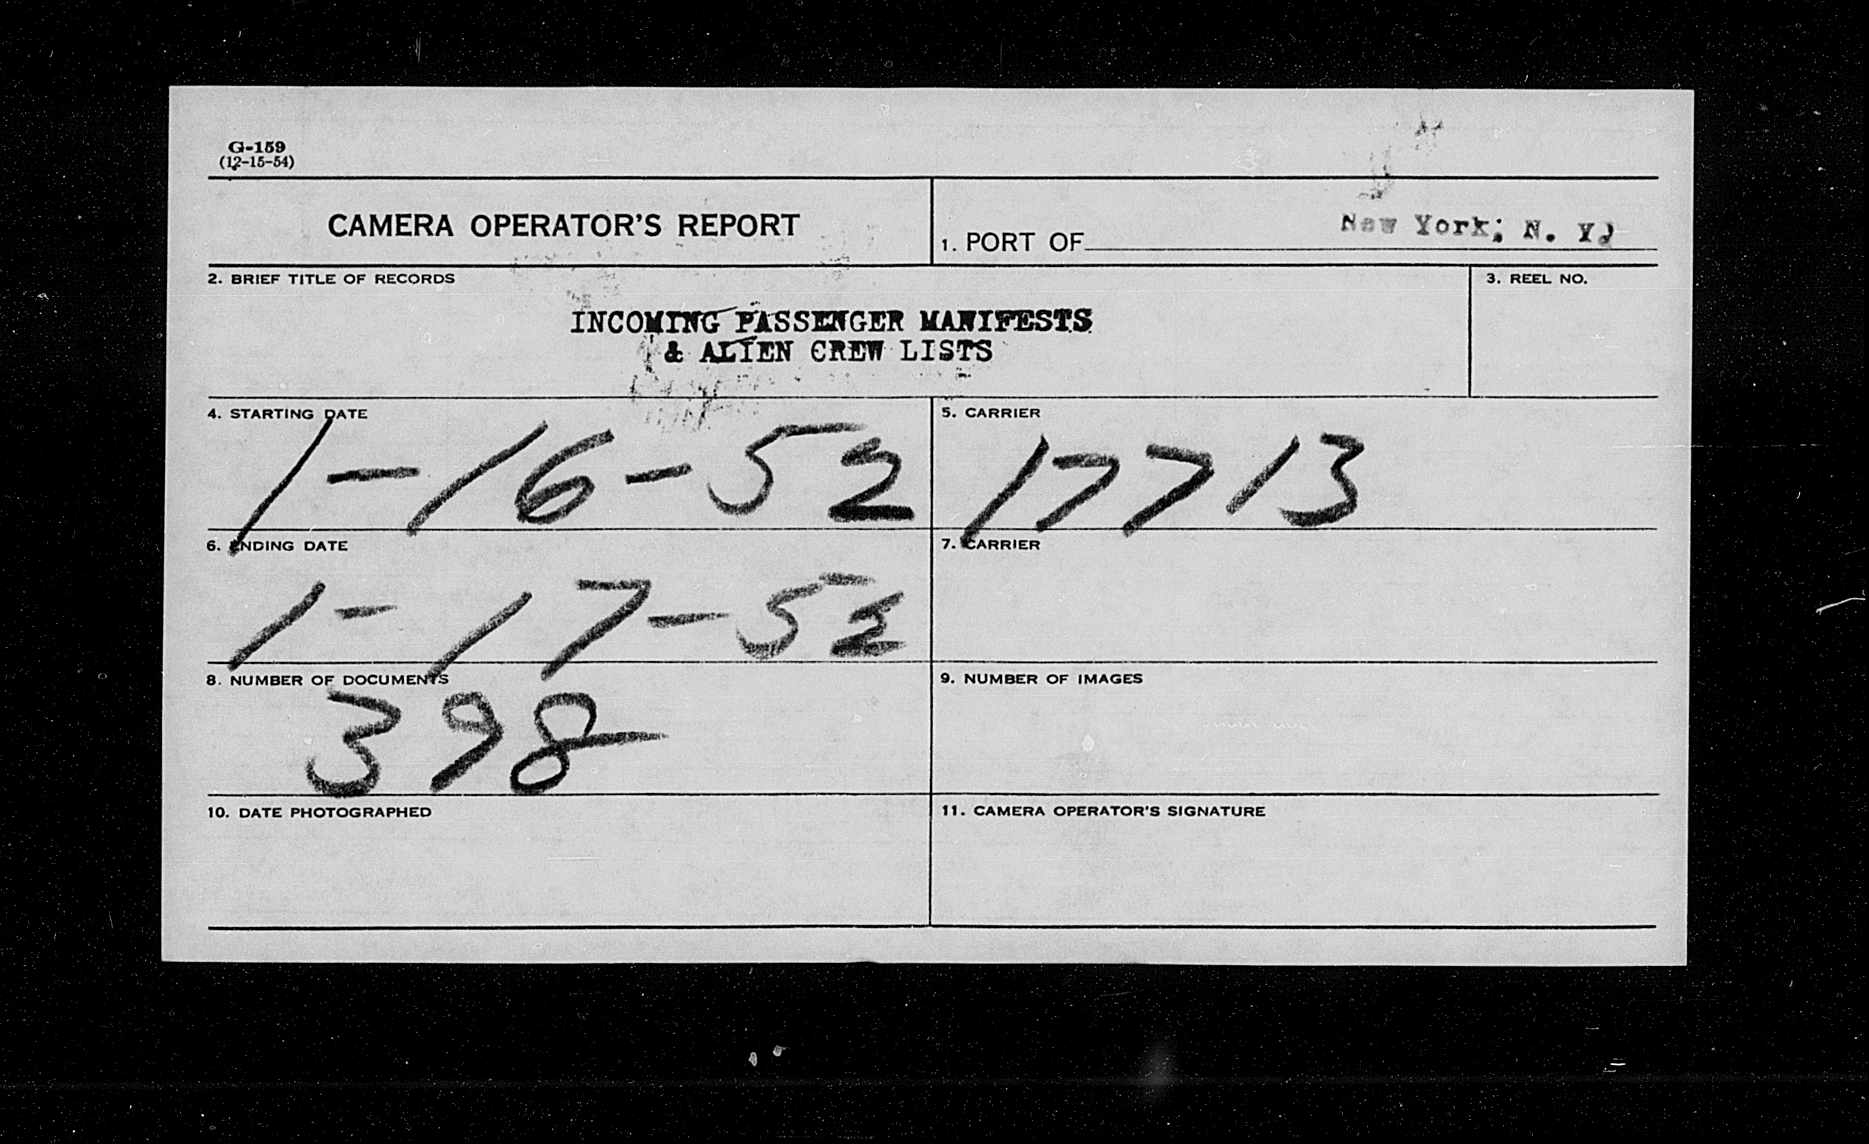 G-159
(12-15-54)
CAMERA OPERATOR'S REPORT
1. PORT OF New York, N. Y.
2. BRIEF TITLE OF RECORDS
3. REEL NO.
INCOMING PASSENGER MANIFESTS
& ALIEN CREW LISTS
4. STARTING DATE
1-16-52
5. CARRIER
17713
6. ENDING DATE
1-17-52
7. CARRIER
8. NUMBER OF DOCUMENTS
398
9. NUMBER OF IMAGES
10. DATE PHOTOGRAPHED
11. CAMERA OPERATOR'S SIGNATURE